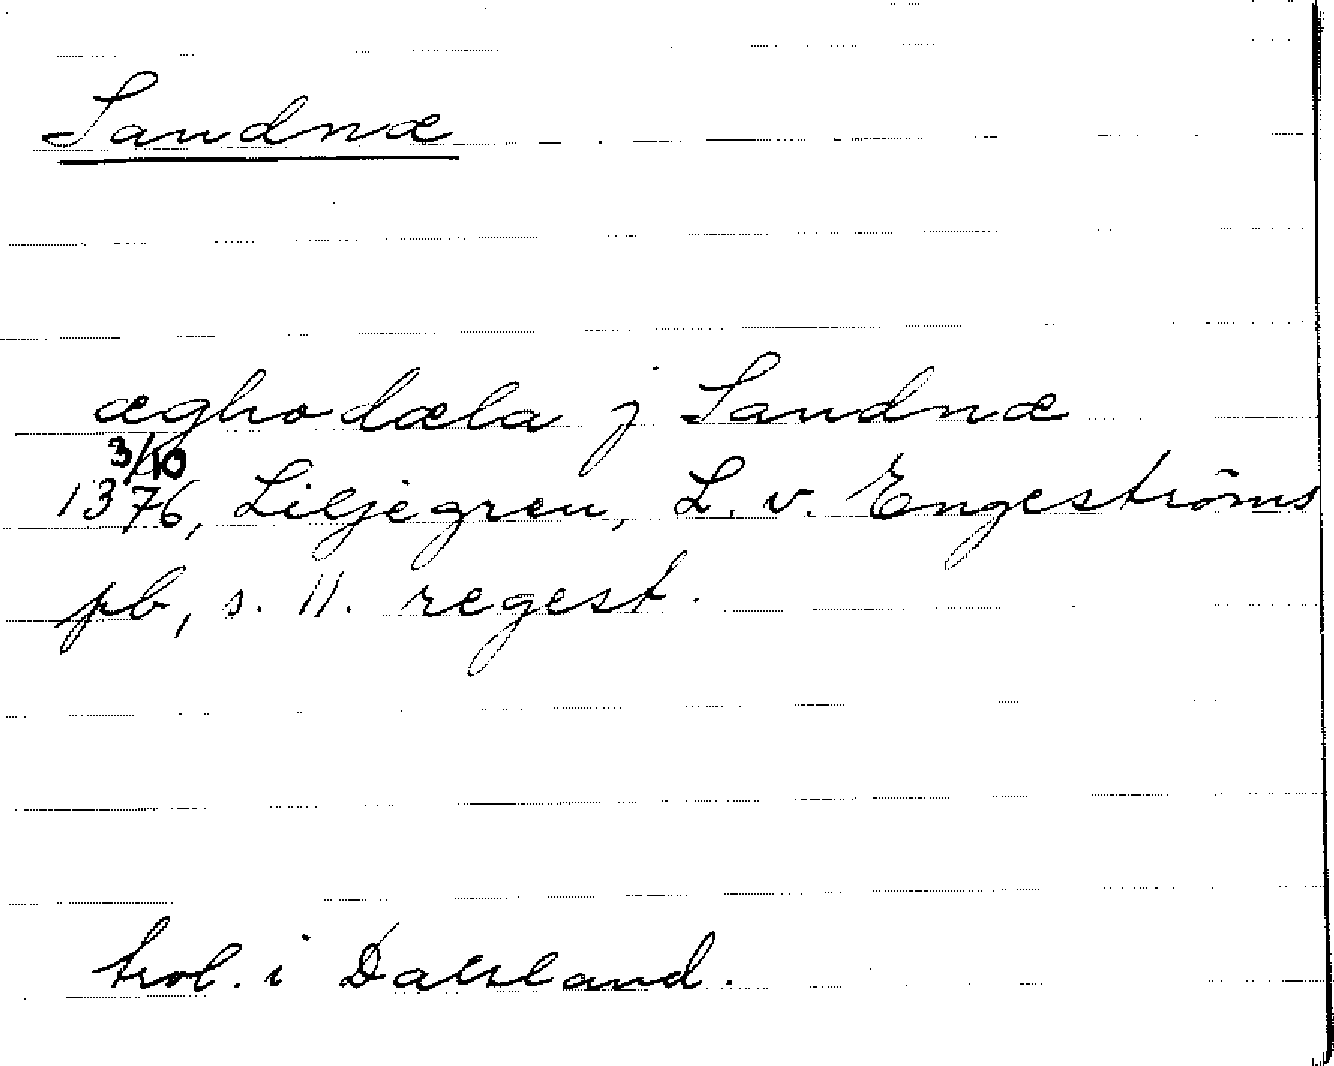 Sandnæ
æghodæla j Sandnæ
3/10
1376, Liljegren, L. v. Engeströms
pb, s. 11. regest.
trol. i Dalsland.